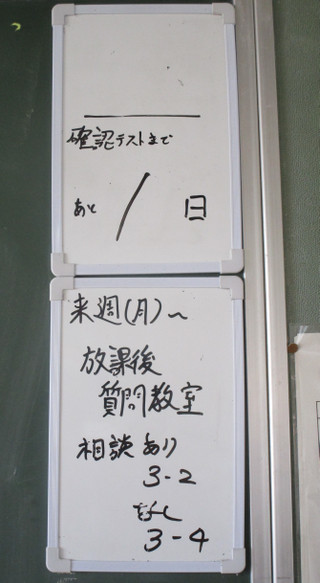 確認テストまで
あと 1 日
来週(月)~
放課後
質問教室
相談あり
3-2
なし
3-4